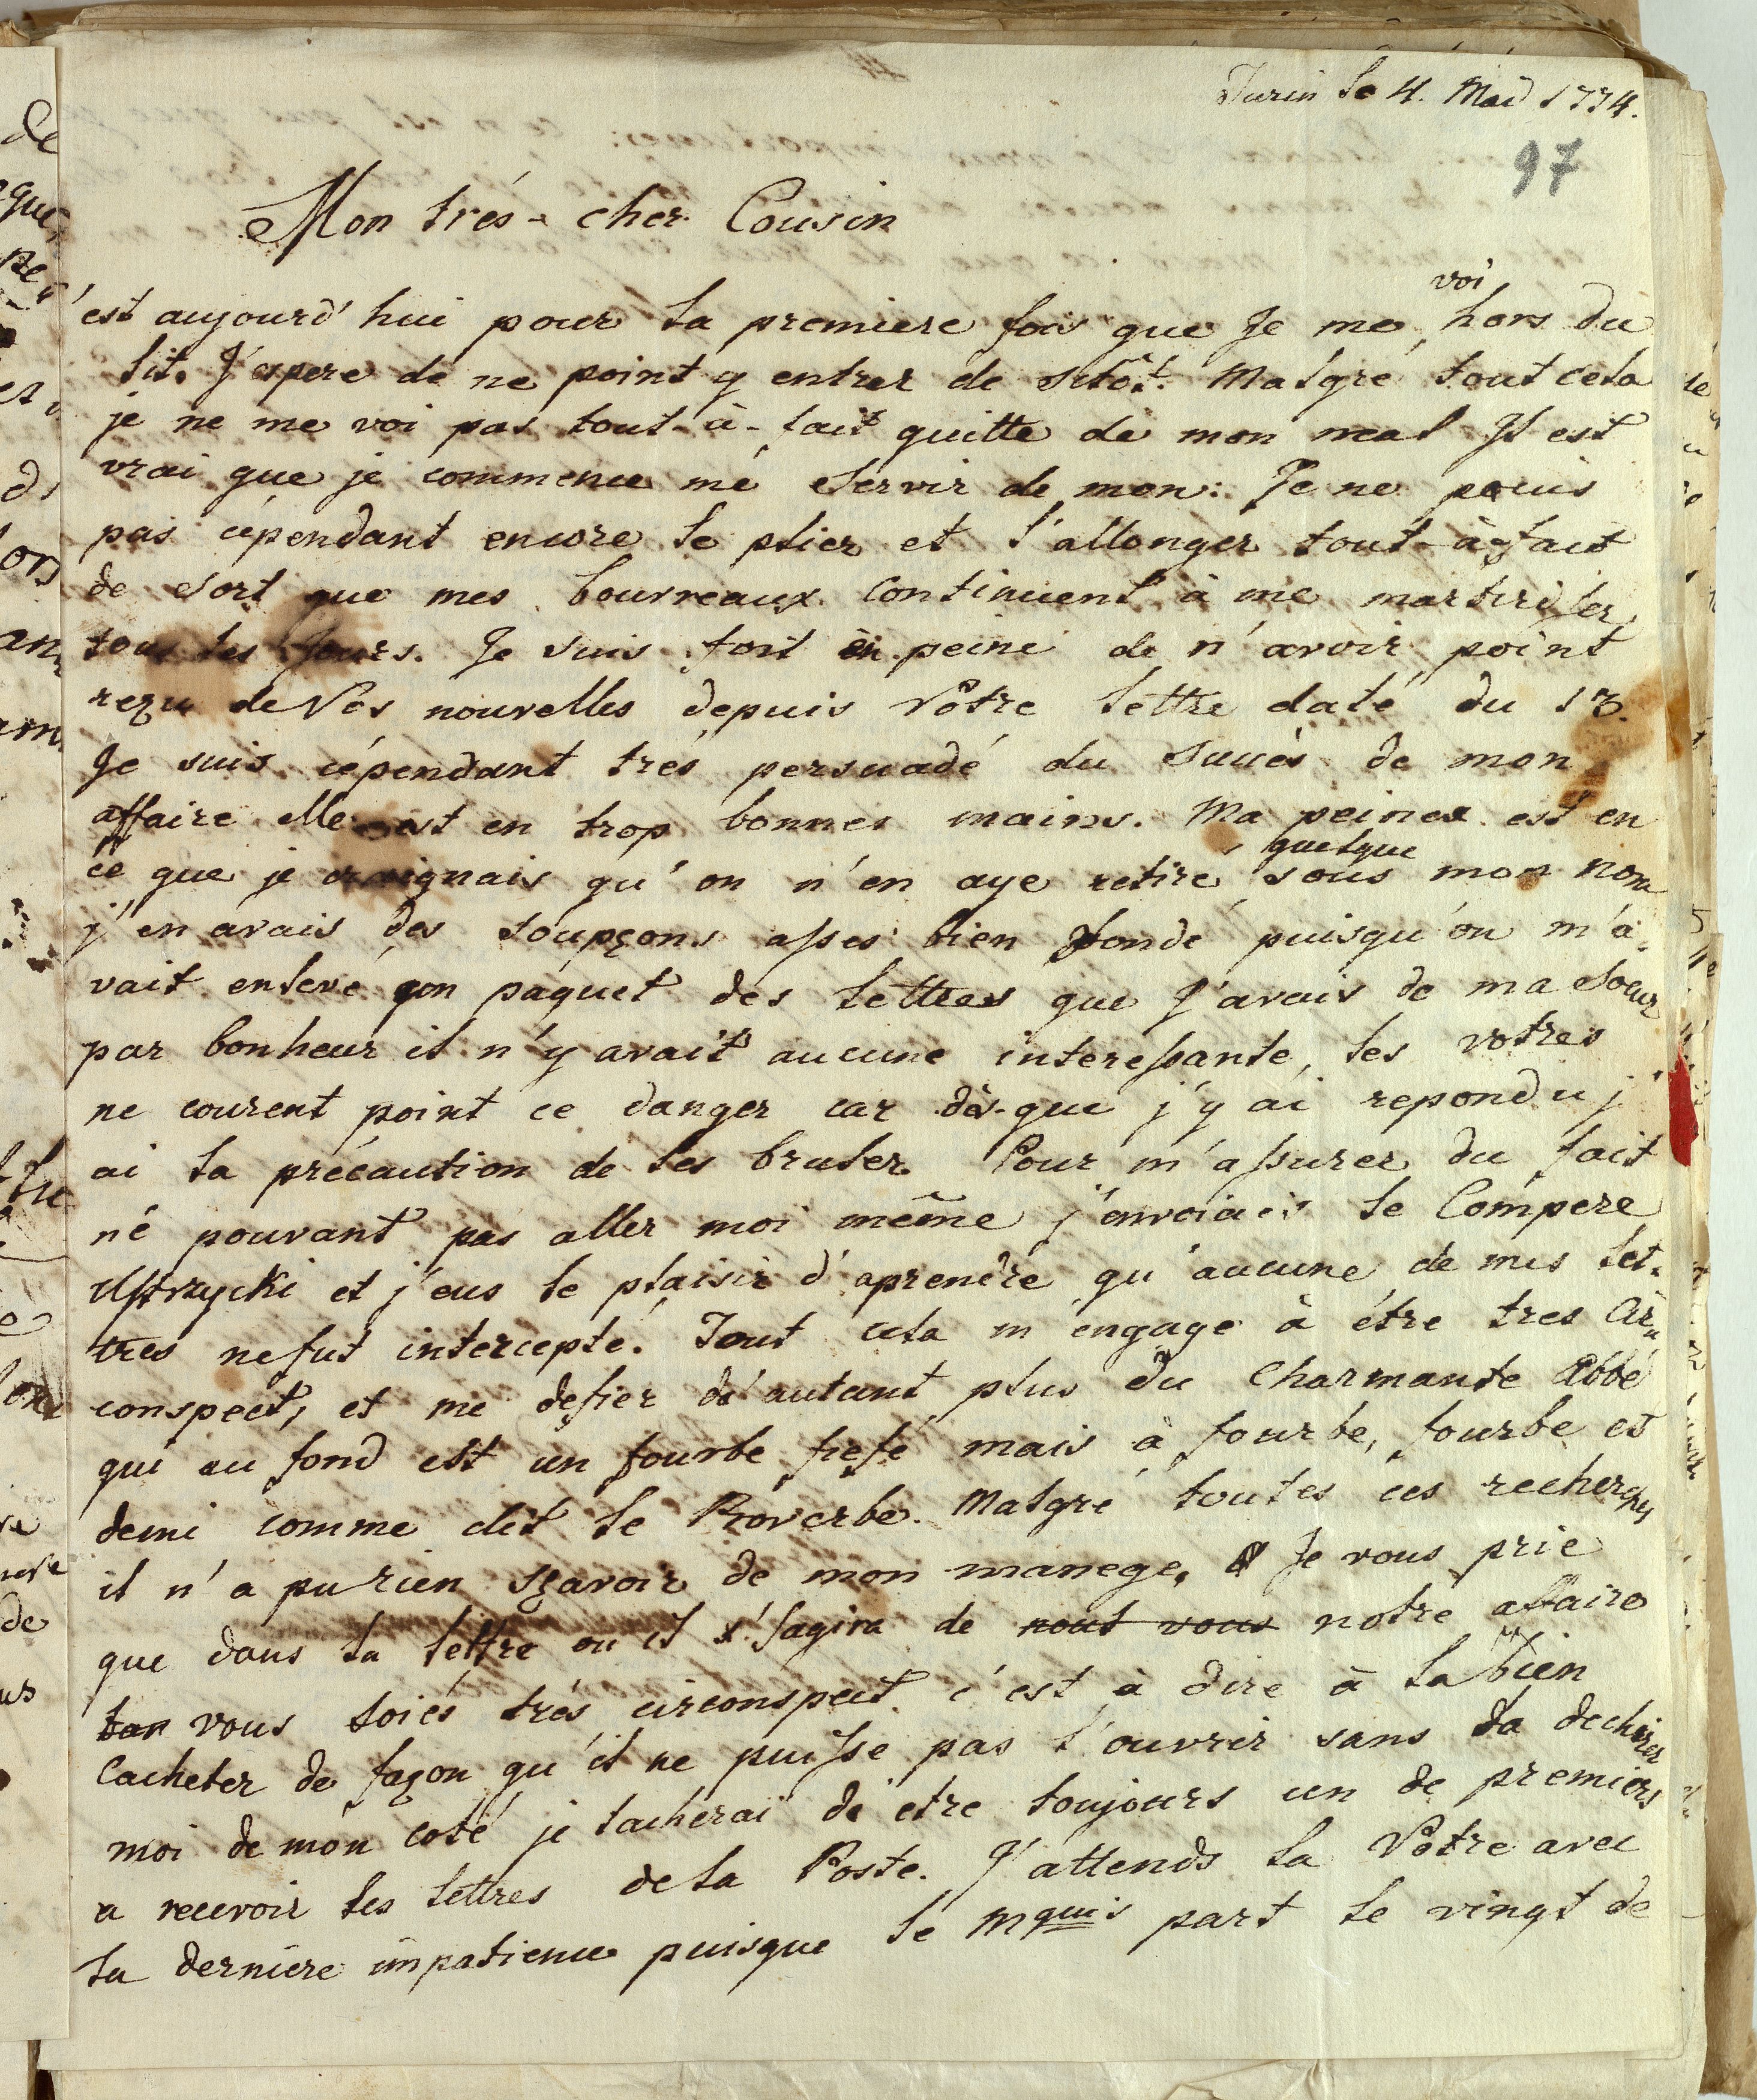 Turin le 4. Mai 1774.
97
Mon trés-cher Cousin
c'est aujourd'hui pour la premiere fois que Je me voi hors du
lit. J'espere de ne point y entrer de sitôt. Malgré tout cela
je ne me voi pas tout-à-fait quitte de mon mal Il est
vrai que je commence me servir de mon: Je ne puis
pas cépendant encore le plier et l'allonger tout-à-fait
de sort que mes bourreaux continuent à me martiriser
tous les jours. Je suis fort en peine de n'avoir point
reçu de Vos nouvelles depuis Vôtre lettre daté du 13.
Je suis cépendant trés persuadé du succés de mon
affaire elle est en trop bonnes mains. Ma peine est en
ce que je craignais qu'on n'en aye retiré quelque sous mon nom
j'en avais des soupçons asses bien fondé puisqu'on m'a-
vait enlevé un paquet des lettres que J'avais de ma Soeur
par bonheur il n'y avait aucune interessante, les votres
ne courent point ce danger car dès-que j'y ai repondu j'
ai la précaution de les bruler. Pour m'assurer du fait
né pouvant pas aller moi même j'envoiais le Compere
Ustrzycki et j'eus le plaisir d'aprendre qu'aucune de mes let-
tres ne fut intercepté. Tout cela m'engage à être tres cir-
conspect, et me defier d'autant plus du Charmante Abbé
qui au fond est un fourbe fiefé mais à fourbe, fourbe et
demi comme dit le Proverbe. Malgré toutes ces recherches
il n'a pu rien sçavoir de mon manege. Je vous prie
que dans la lettre ou il s'agira de nout vous notre affaire
tan vous soiés trés circonspect c'est à dire à la bien
Cacheter de façon qu'il ne puisse pas l'ouvrir sans la dechirer
moi de mon coté je tacherai de etre toujours un de premiers
a recevoir les lettres de la Poste. J'attends la Vôtre avec
la derniere impatience puisque le Mquis part le vingt de